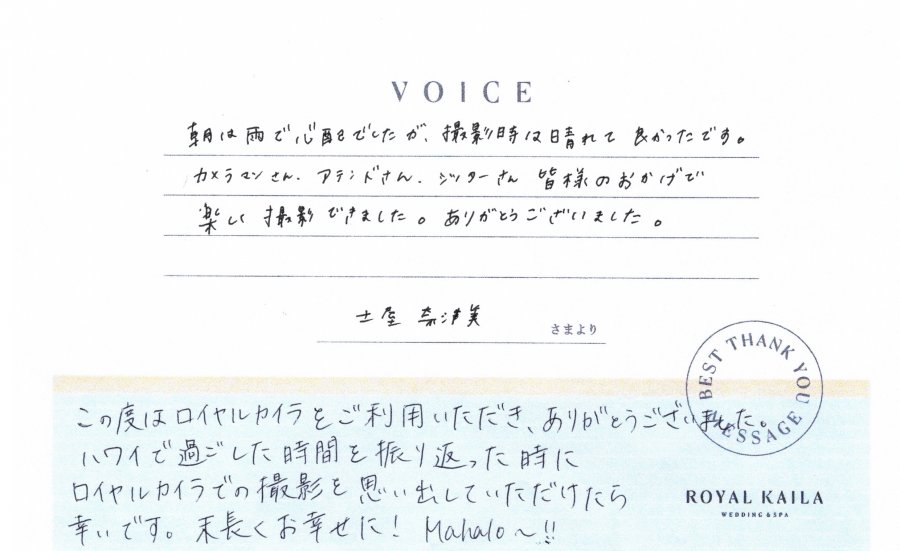 VOICE
朝は雨で心配でしたが、撮影時は晴れて 良かったです。
カメラマンさん、アテンドさん、シッターさん 皆様のおかげで
楽しく 撮影できました。ありがとうございました。
土屋 奈津美 さまより
BEST THANK YOU MESSAGE
この度はロイヤルカイラをご利用いただき、ありがとうございました。
ハワイで過ごした時間を振り返った時に
ロイヤルカイラでの撮影を思い出していただけたら
幸いです。末長くお幸せに! Mahalo〜!!
ROYAL KAILA
WEDDING & SPA